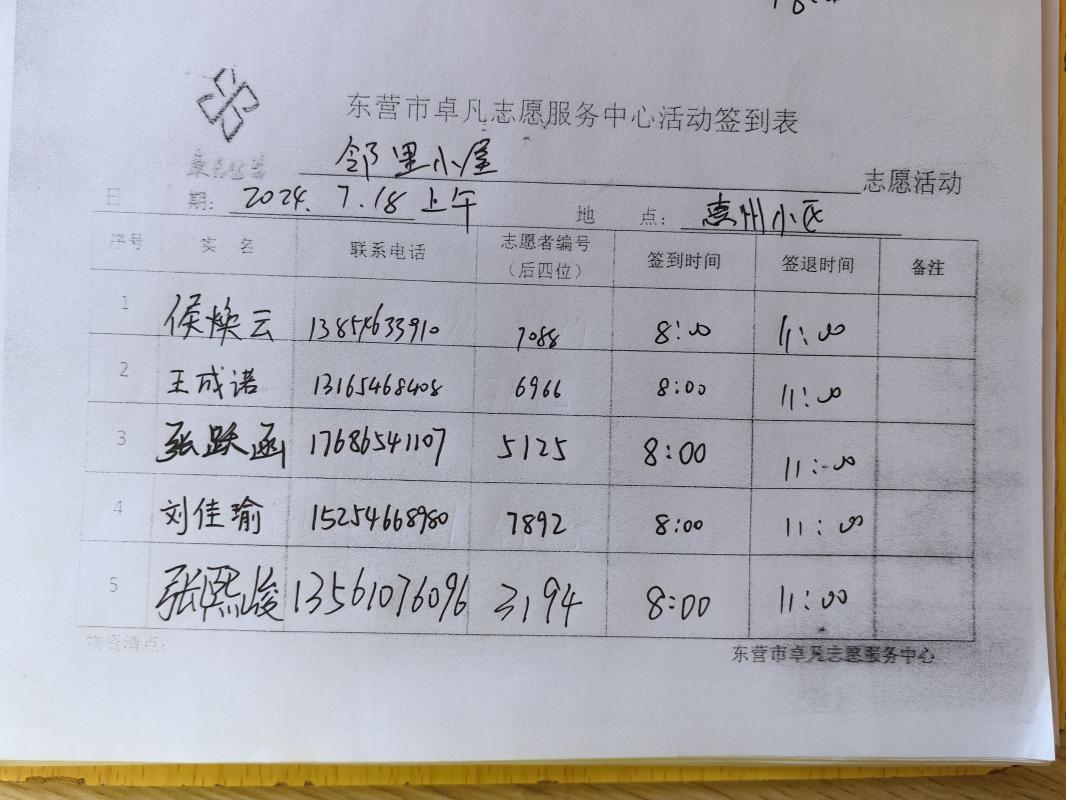 东营市卓凡志愿服务中心活动签到表
邻里小屋 志愿活动
日 期: 2024.7.18上午 地 点: 惠州小区
序号 实 名 联系电话 志愿者编号（后四位） 签到时间 签退时间 备注
1 侯焕云 13854633910 7088 8:00 11:00
2 王成诺 13165468408 6966 8:00 11:00
3 张跃函 17686541107 5125 8:00 11:00
4 刘佳瑜 15254668980 7892 8:00 11:00
5 张熙峻 13561076096 3194 8:00 11:00
物资清点:
东营市卓凡志愿服务中心